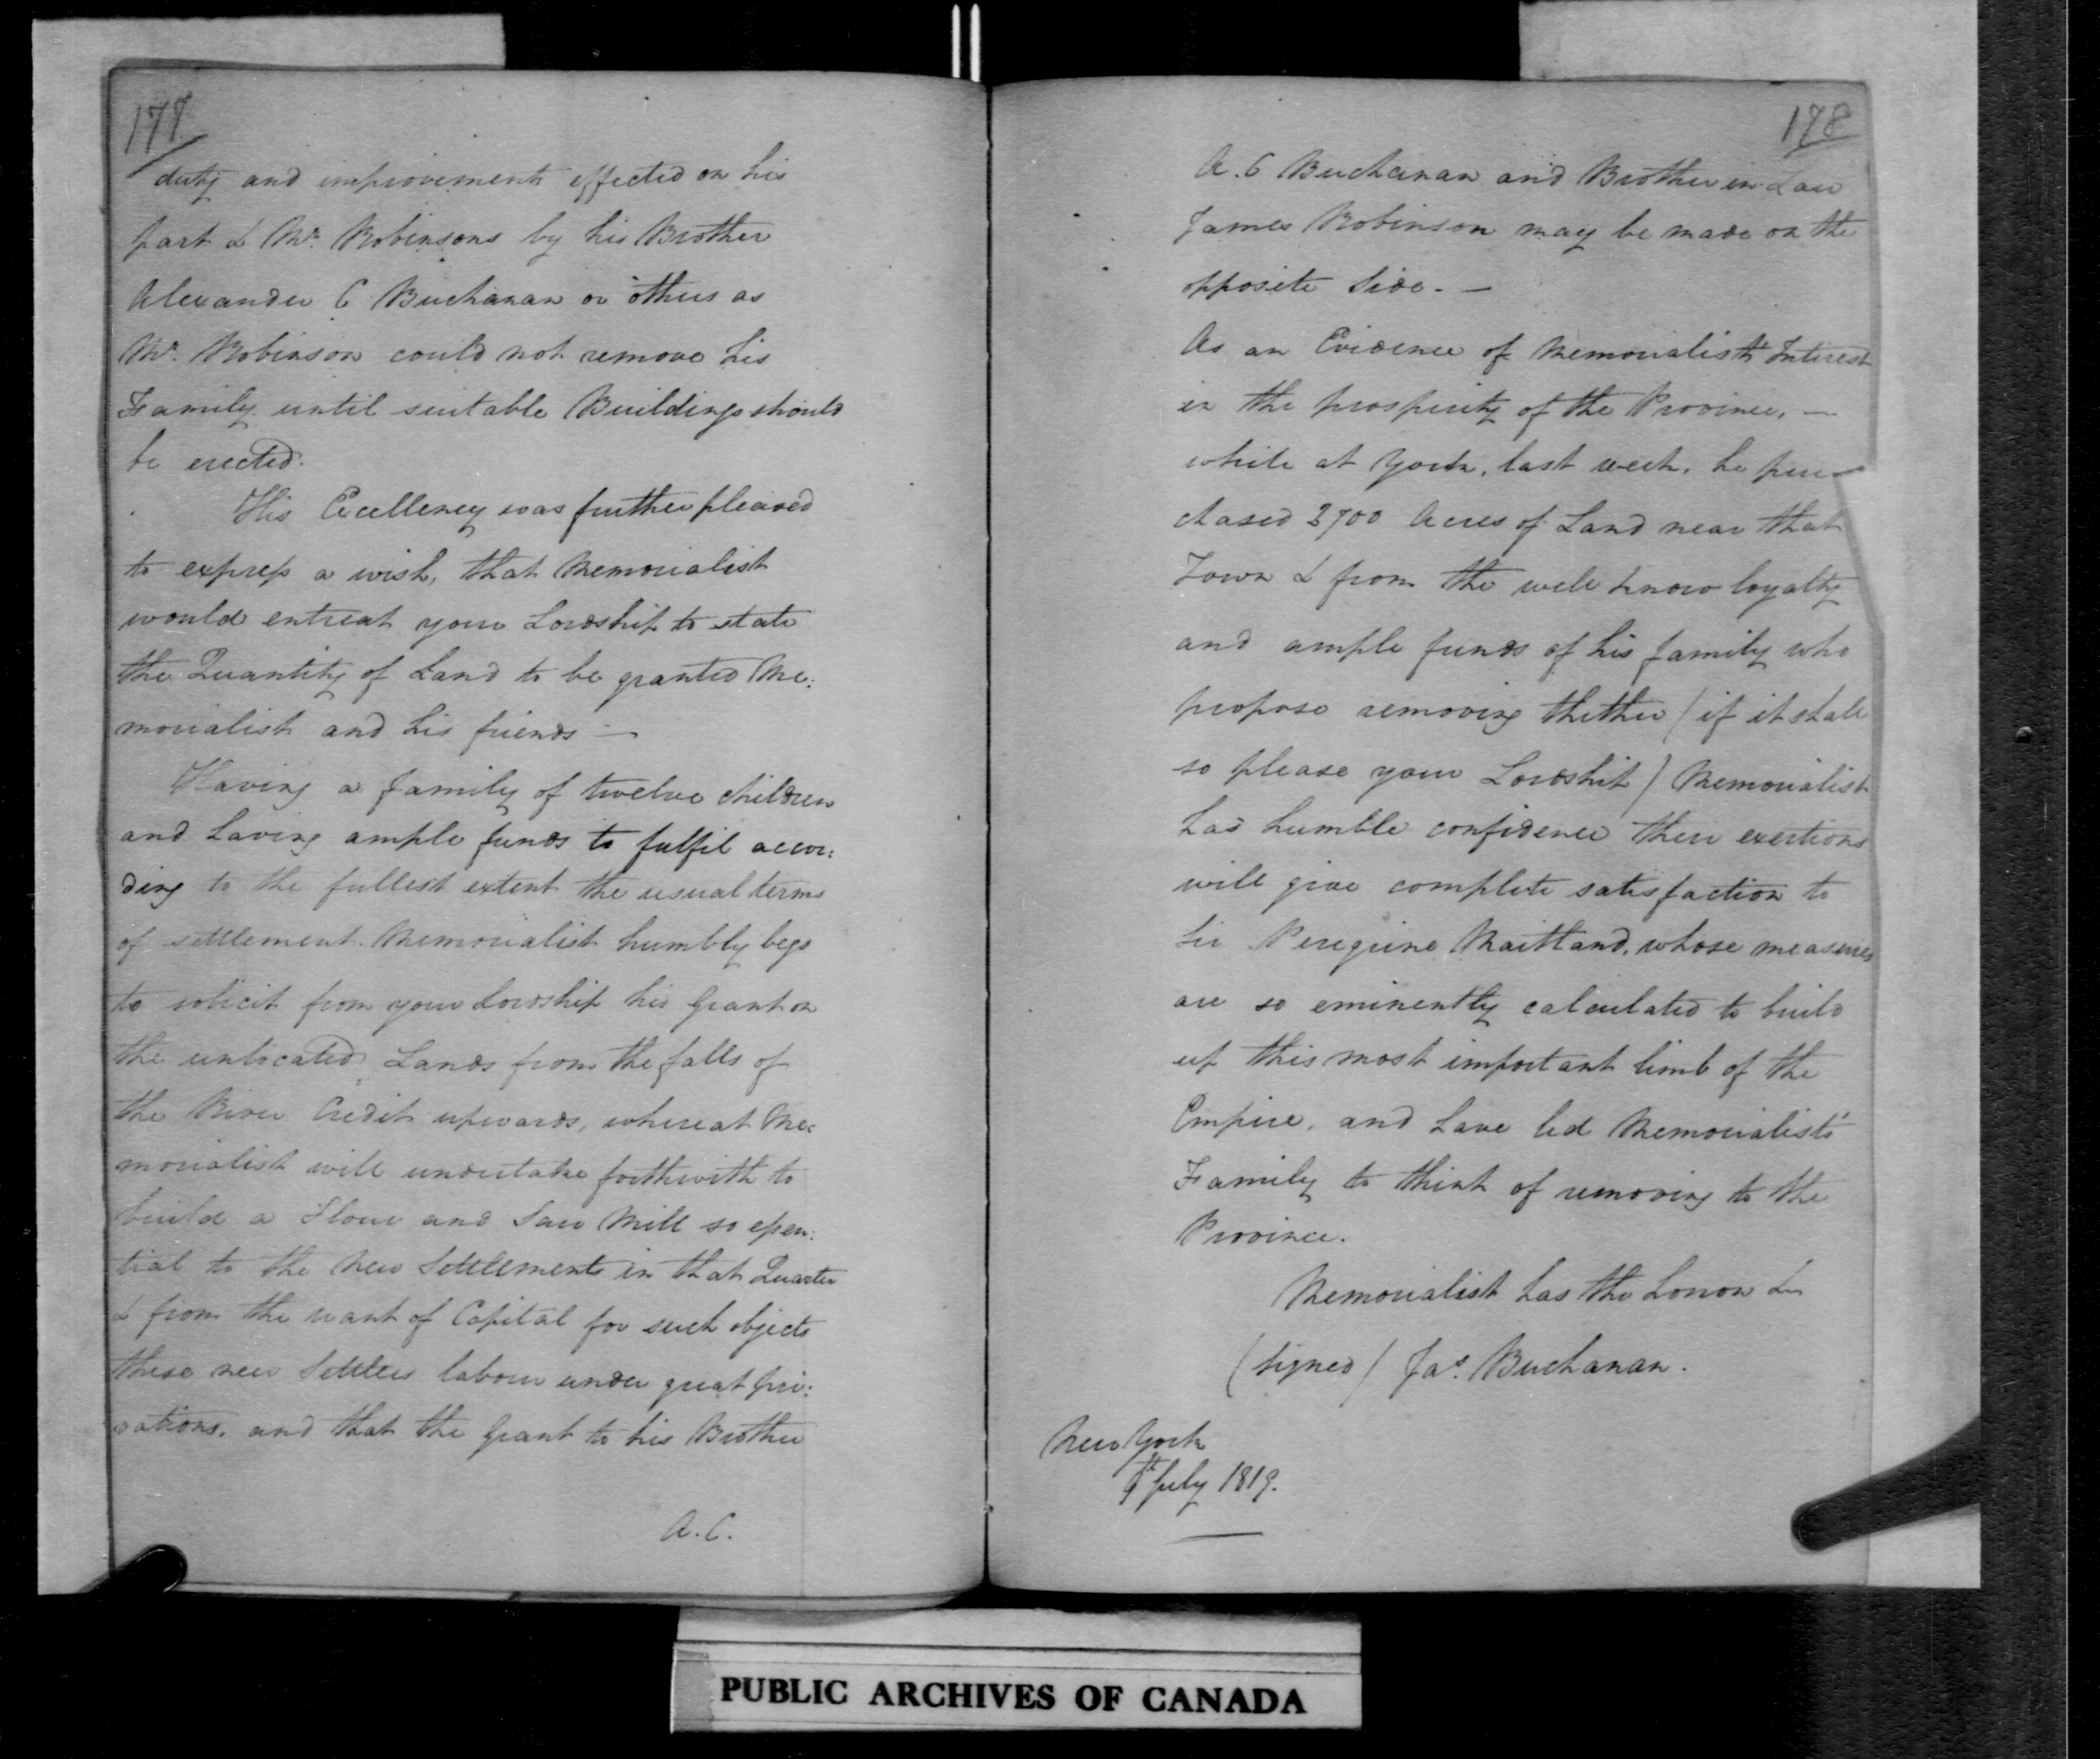 177
duty and improvements effected on his
part & Mr. Robinsons by his Brother
Alexander C Buchanan or others as
Mr. Robinson could not remove his
Family until suitable Buildings should
be erected.
His Excellency was further pleased
to express a wish, that Memorialist
would entreat your Lordship to state
the Quantity of Land to be granted Me:
morialist and his friends —
Having a family of twelve children
and having ample funds to fulfil accor:
ding to the fullest extent the usual terms
of settlement. Memorialist humbly begs
to solicit from your Lordship his Grant on
the unlocated Lands from the falls of
the River Credit upwards, whereat Me:
morialist will undertake forthwith to
build a Flour and Saw Mill so essen:
tial to the New Settlements in that Quarter
& from the want of Capital for such objects
these new Settlers labour under great pri:
vations. and that the Grant to his Brother
A. C.
178
A. C Buchanan and Brother in Law
James Robinson may be made on the
opposite Side. —
As an Evidence of Memorialist's Interest
in the prosperity of the Province, —
while at York, last week, he pur
chased 2700 Acres of Land near that
Town & from the well know loyalty
and ample funds of his family who
propose removing thither (if it shall
so please your Lordship) Memorialist
has humble confidence their exertions
will give complete satisfaction to
Sir Peregrine Maitland, whose measures
are so eminently calculated to build
up this most important limb of the
Empire, and have led Memorialist's
Family to think of removing to the
Province.
Memorialist has the honor &c
(signed) Jas. Buchanan.
New York
9th July 1819.
PUBLIC ARCHIVES OF CANADA